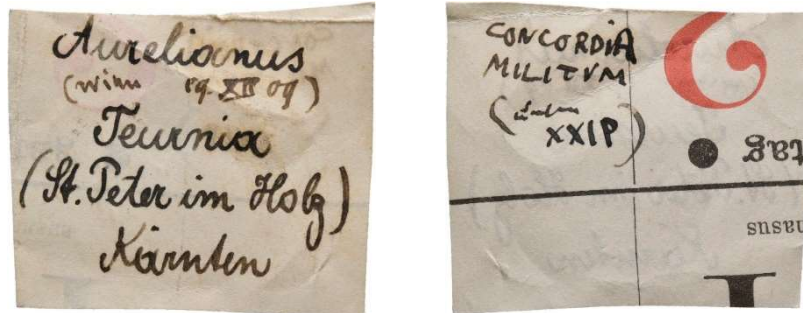 Aurelianus
(Wien 19. XII 09)
Teurnia
(St. Peter im Holz)
Kärnten
CONCORDIA
MILITVM
XXIP
tag